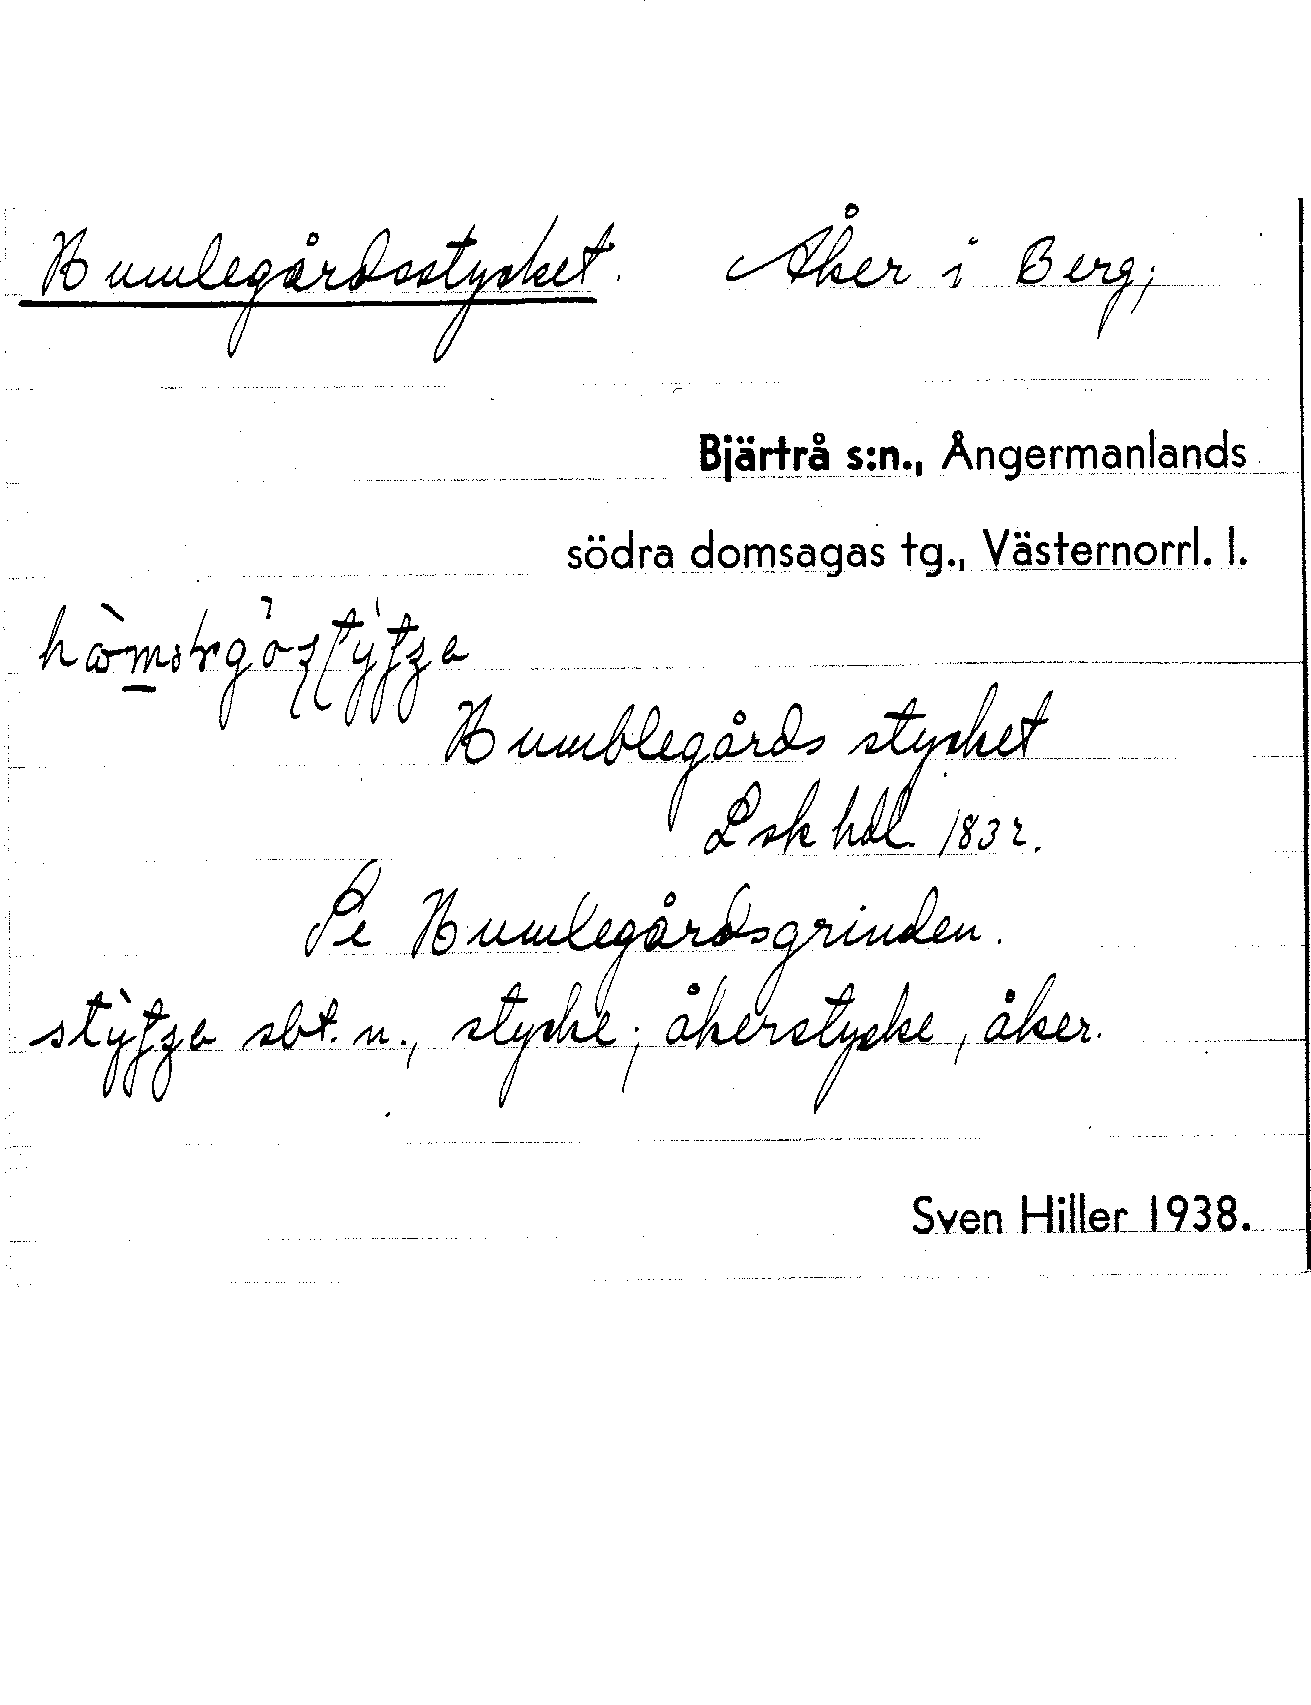 Humlegårdsstycket. Åker i Berg;
Bjärtrå s:n., Ångermanlands
södra domsagas tg., Västernorrl. l.
Humblegårds stycket
Lskhdl. 1832.
Se Humlegårdsgrinden.
sbt. n., stycke; åkerstycke, åker.
Sven Hiller 1938.